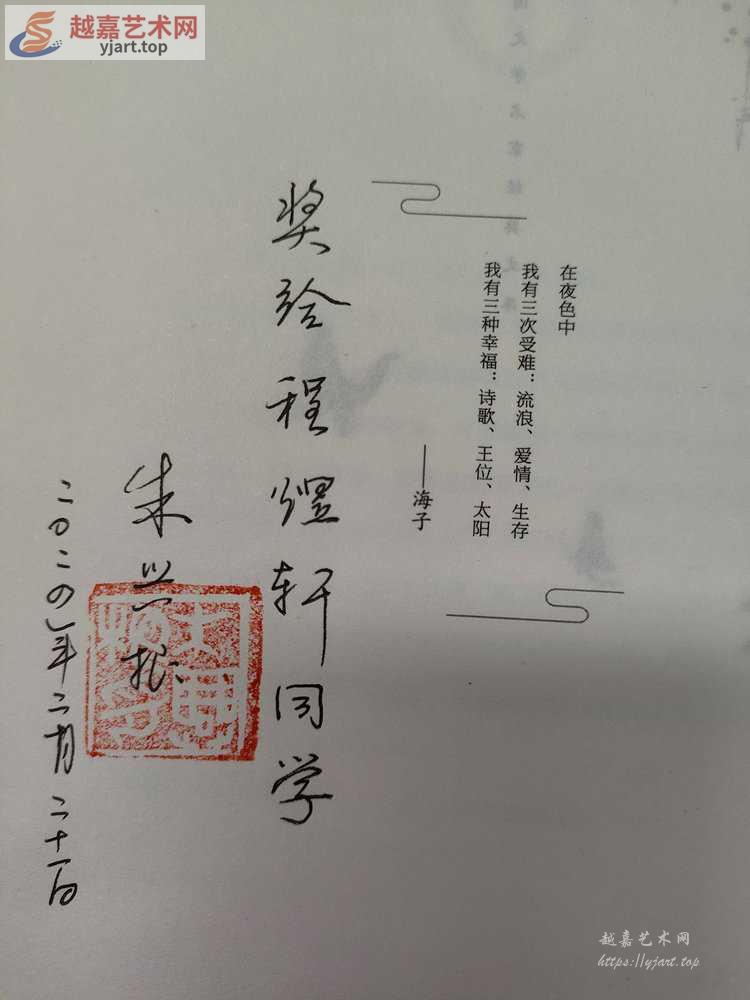 越嘉艺术网
yjart.top
在夜色中
我有三次受难：流浪、爱情、生存
我有三种幸福：诗歌、王位、太阳
——海子
奖给程煜轩同学
朱兴根
二〇二四年二月二十一日
越嘉艺术网
https://yjart.top